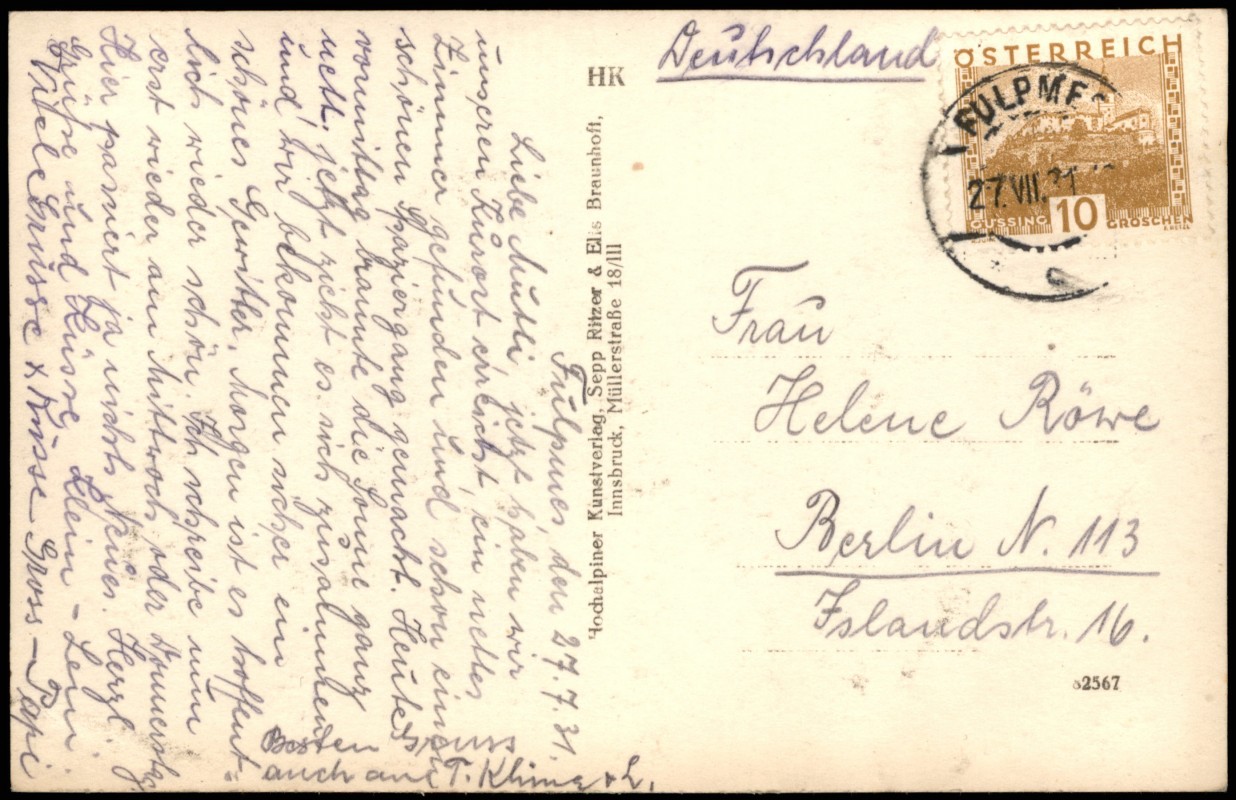 Fulpmes den 27.7.31.
Liebe Mutti, jetzt haben wir
unseren Kurort erreicht, ein nettes
Zimmer gefunden und schon einen
schönen Spaziergang gemacht. Heute
vormittag brannte die Sonne ganz
nett, jetzt zieht es sich zusammen
und wir bekommen sicher ein
schönes Gewitter. Morgen ist es hoffent-
lich wieder schön. Ich schreibe nun
erst wieder am Mittwoch oder Donnerstag.
Hier passiert ja nichts Neues. Herzl.
Grüsse und Küsse Klein-Leni.
Viele Grüsse & Küsse Gross-Papi
Besten Gruss
auch an T. Klima & L.
HK
Hochalpiner Kunstverlag, Sepp Ritzer & Elis Braunhoft,
Innsbruck, Müllerstraße 18/III
Deutschland
ÖSTERREICH
FULPMES
27.VII.31
GÜSSING 10 GROSCHEN
Frau
Helene Röwe
Berlin N. 113
Islandstr. 16.
82567